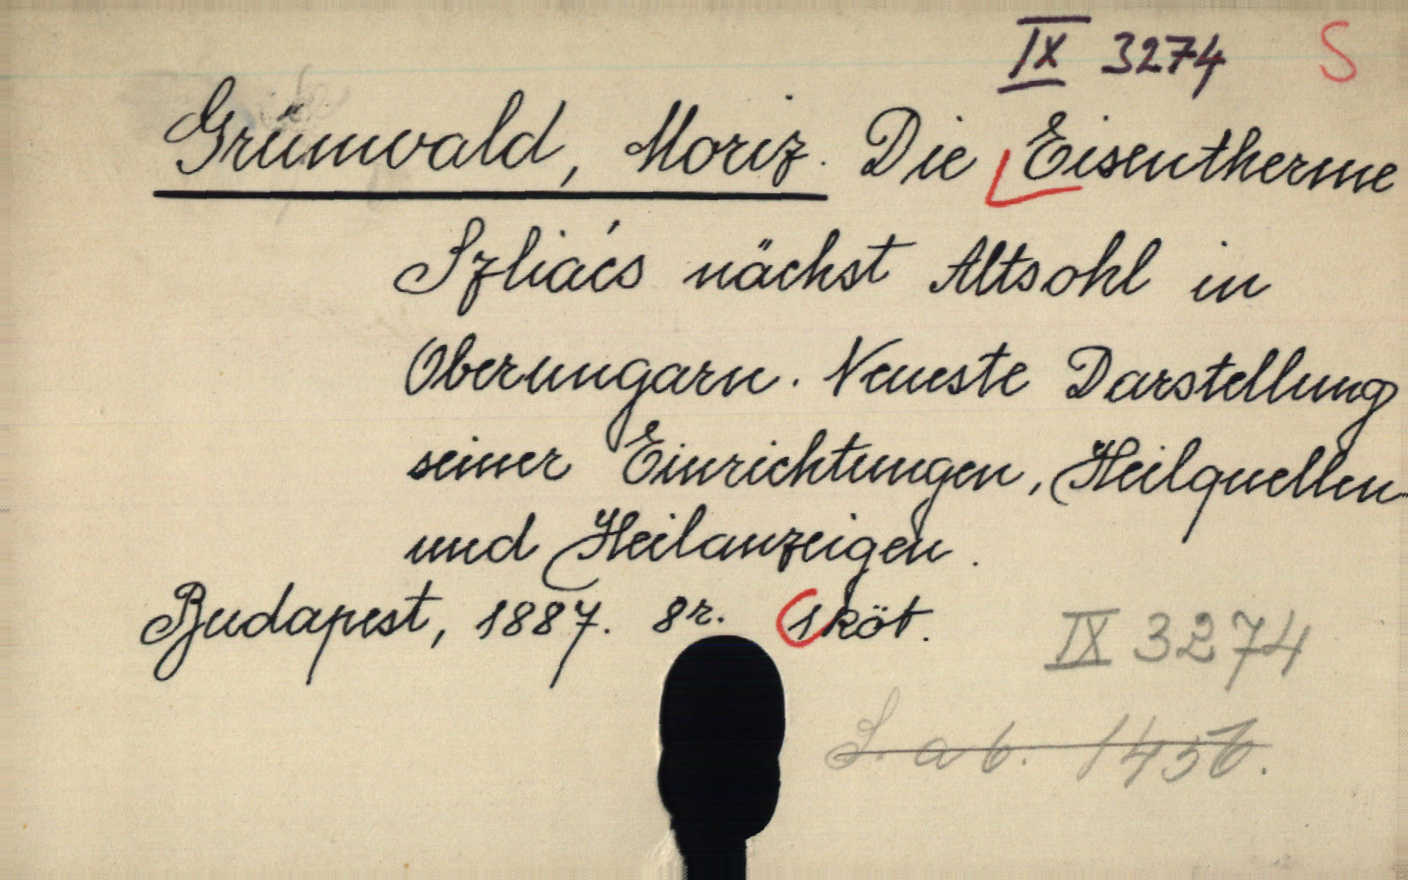 IX 3274 S
Grünwald, Moriz. Die Eisentherme
Szliács nächst Altsohl in
Oberungarn. Neueste Darstellung
seiner Einrichtungen, Heilquellen
und Heilanzeigen.
Budapest, 1887. 8r. 1 köt.
IX 3274
L. a b. 1456.